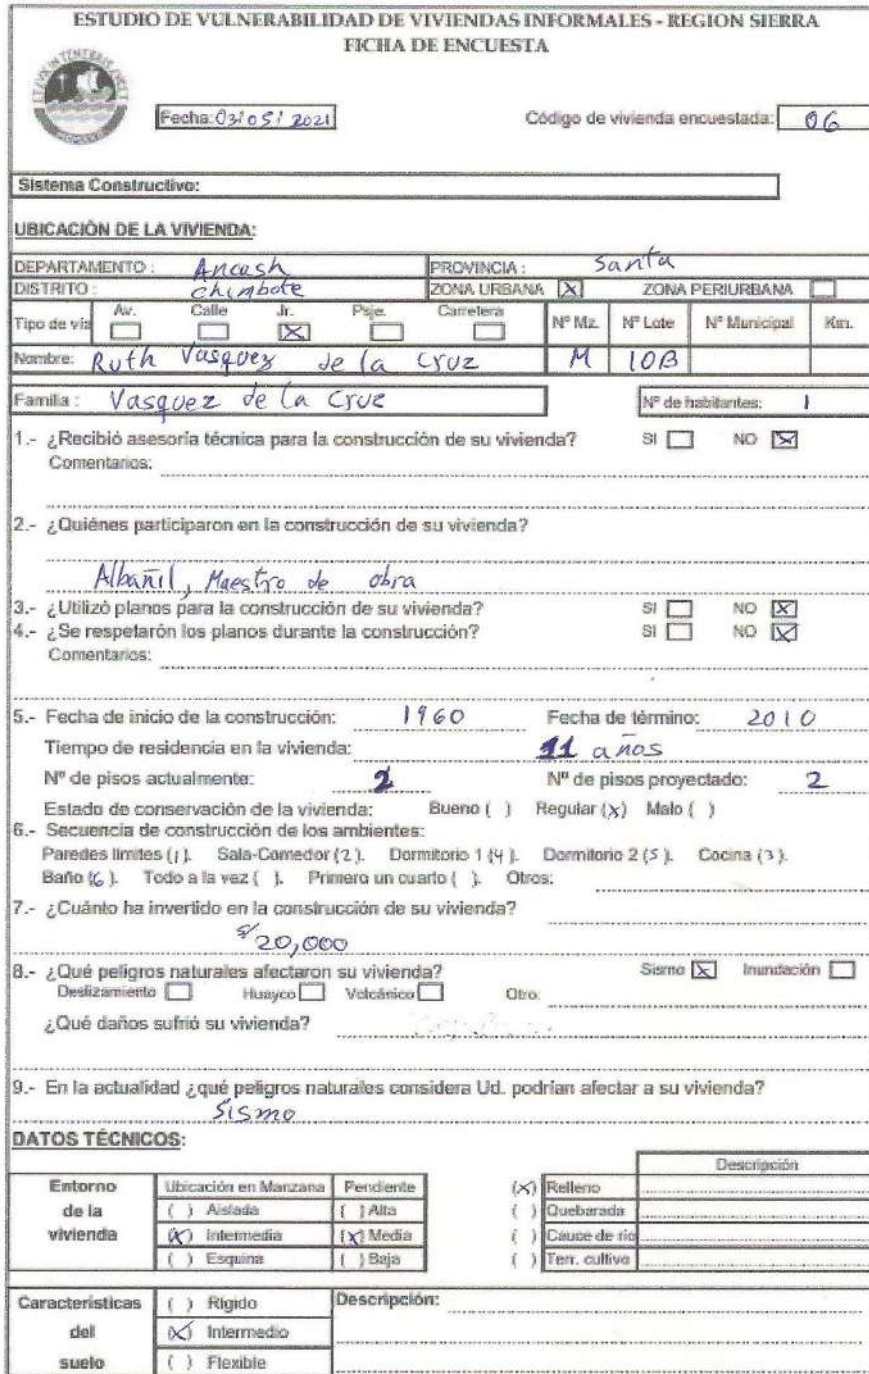 ESTUDIO DE VULNERABILIDAD DE VIVIENDAS INFORMALES - REGION SIERRA
FICHA DE ENCUESTA
Fecha: 03/05/2021 Código de vivienda encuestada: 06
Sistema Constructivo:
UBICACIÓN DE LA VIVIENDA:
DEPARTAMENTO : Ancash PROVINCIA : Santa
DISTRITO : Chimbote ZONA URBANA [X] ZONA PERIURBANA [ ]
Tipo de vía Av. [ ] Calle [ ] Jr. [X] Psje. [ ] Carretera [ ] Nº Mz. Nº Lote Nº Municipal Km.
Nombre: Ruth Vasquez de la Cruz M 10B
Familia : Vasquez de la Cruz Nº de habitantes: 1
1.- ¿Recibió asesoría técnica para la construcción de su vivienda? SI [ ] NO [X]
Comentarios:
2.- ¿Quiénes participaron en la construcción de su vivienda?
Albañil, Maestro de obra
3.- ¿Utilizó planos para la construcción de su vivienda? SI [ ] NO [X]
4.- ¿Se respetarón los planos durante la construcción? SI [ ] NO [X]
Comentarios:
5.- Fecha de inicio de la construcción: 1960 Fecha de término: 2010
Tiempo de residencia en la vivienda: 11 años
Nº de pisos actualmente: 2 Nº de pisos proyectado: 2
Estado de conservación de la vivienda: Bueno ( ) Regular (X) Malo ( )
6.- Secuencia de construcción de los ambientes:
Paredes límites (1). Sala-Comedor (2). Dormitorio 1 (4). Dormitorio 2 (5). Cocina (3).
Baño (6). Todo a la vez ( ). Primero un cuarto ( ). Otros:
7.- ¿Cuánto ha invertido en la construcción de su vivienda?
S/20,000
8.- ¿Qué peligros naturales afectaron su vivienda? Sismo [X] Inundación [ ]
Deslizamiento [ ] Huayco [ ] Volcánico [ ] Otro:
¿Qué daños sufrió su vivienda?
9.- En la actualidad ¿qué peligros naturales considera Ud. podrían afectar a su vivienda?
Sismo
DATOS TÉCNICOS:
Descripción
Entorno Ubicación en Manzana Pendiente (X) Relleno
de la ( ) Aislada ( ) Alta ( ) Quebarada
vivienda (X) Intermedia (X) Media ( ) Cauce de río
( ) Esquina ( ) Baja ( ) Terr. cultivo
Características ( ) Rígido Descripción:
del (X) Intermedio
suelo ( ) Flexible